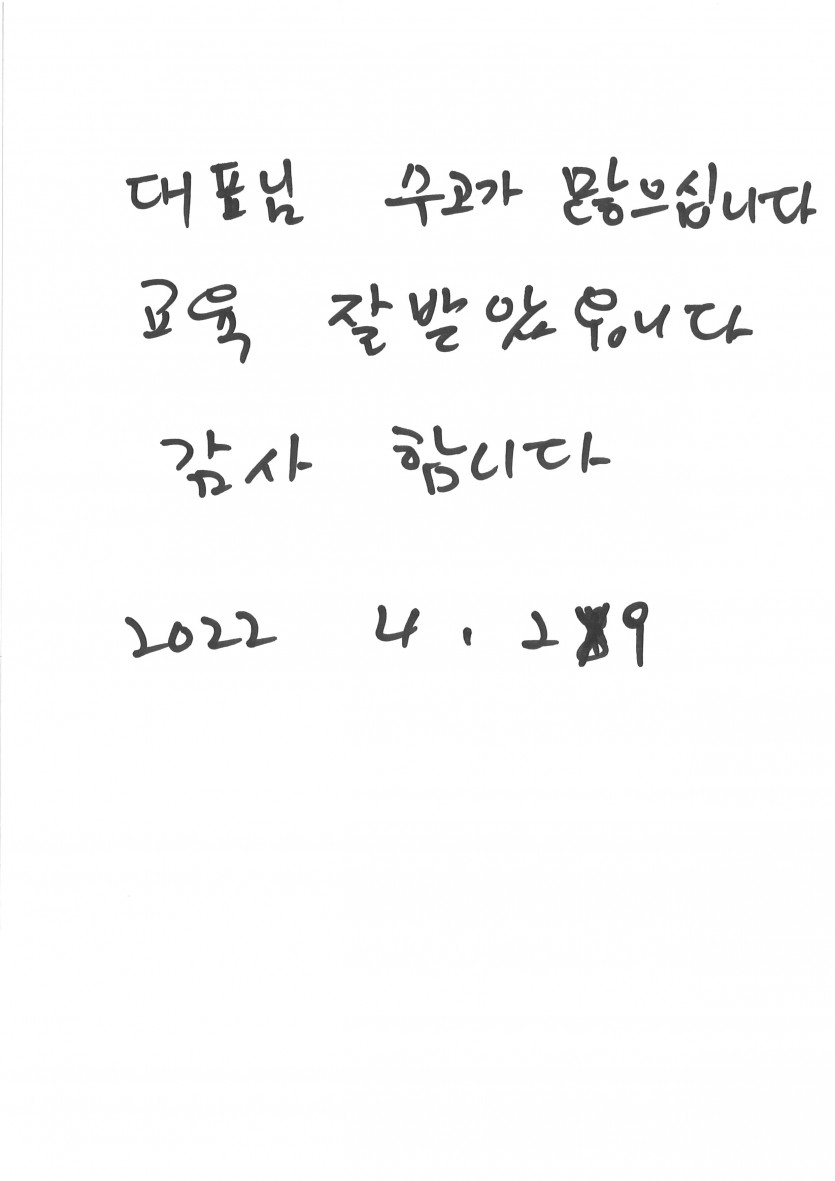 대표님 수고가 많으십니다
교육 잘 받았읍니다
감사 합니다
2022 4. 29